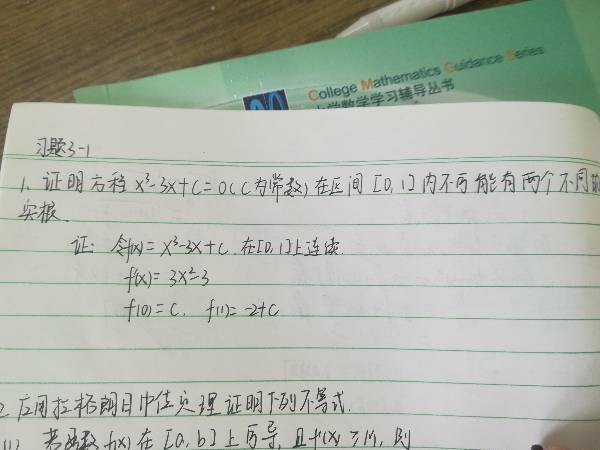 College Mathematics Guidance Series
大学数学学习辅导丛书
习题3-1
1. 证明方程 x³-3x+C=0(C为常数)在区间[0,1]内不可能有两个不同的
实根.
证: 令f(x)=x³-3x+C.在[0,1]上连续.
f'(x)=3x²-3
f(0)=C. f(1)=-2+C
2. 应用拉格朗日中值定理证明下列不等式.
(1) 若函数f(x)在[a,b]上可导,且f'(x)≥m,则